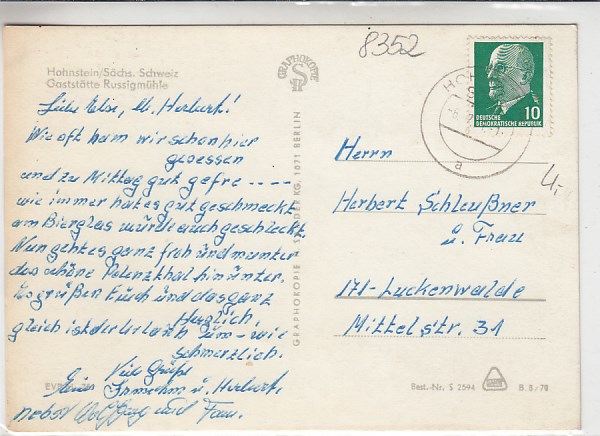 8352
Hohnstein/Sächs. Schweiz
Gaststätte Russigmühle
Liebe Else, lb. Herbert!
Wie oft ham wir schon hier
gesessen
und zu Mittag gut gefre.....
wie immer hat es gut geschmeckt
am Bierglas wurde auch geschleckt
Nun geht es ganz froh und munter
das schöne Polenzthal hinunter.
Es grüßen Euch und das ganz
Herzlich,
gleich ist der Urlaub um - wie
schmerzlich.
Viele Grüße
Herbert
nebst Wolfgang und Frau.
GRAPHOKOPIE
GRAPHOKOPIE H. SANDER KG, 1071 BERLIN
10
DEUTSCHE
DEMOKRATISCHE REPUBLIK
HOH
a
4,-
Herrn
Herbert Schleußner
u. Frau
171-Luckenwalde
Mittelstr. 31
Best.-Nr. S 2594
B. 8/70